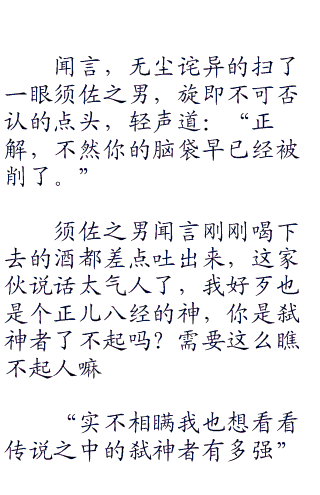 闻言，无尘诧异的扫了
一眼须佐之男，旋即不可否
认的点头，轻声道：“正
解，不然你的脑袋早已经被
削了。”
须佐之男闻言刚刚喝下
去的酒都差点吐出来，这家
伙说话太气人了，我好歹也
是个正儿八经的神，你是弑
神者了不起吗？需要这么瞧
不起人嘛
“实不相瞒我也想看看
传说之中的弑神者有多强”